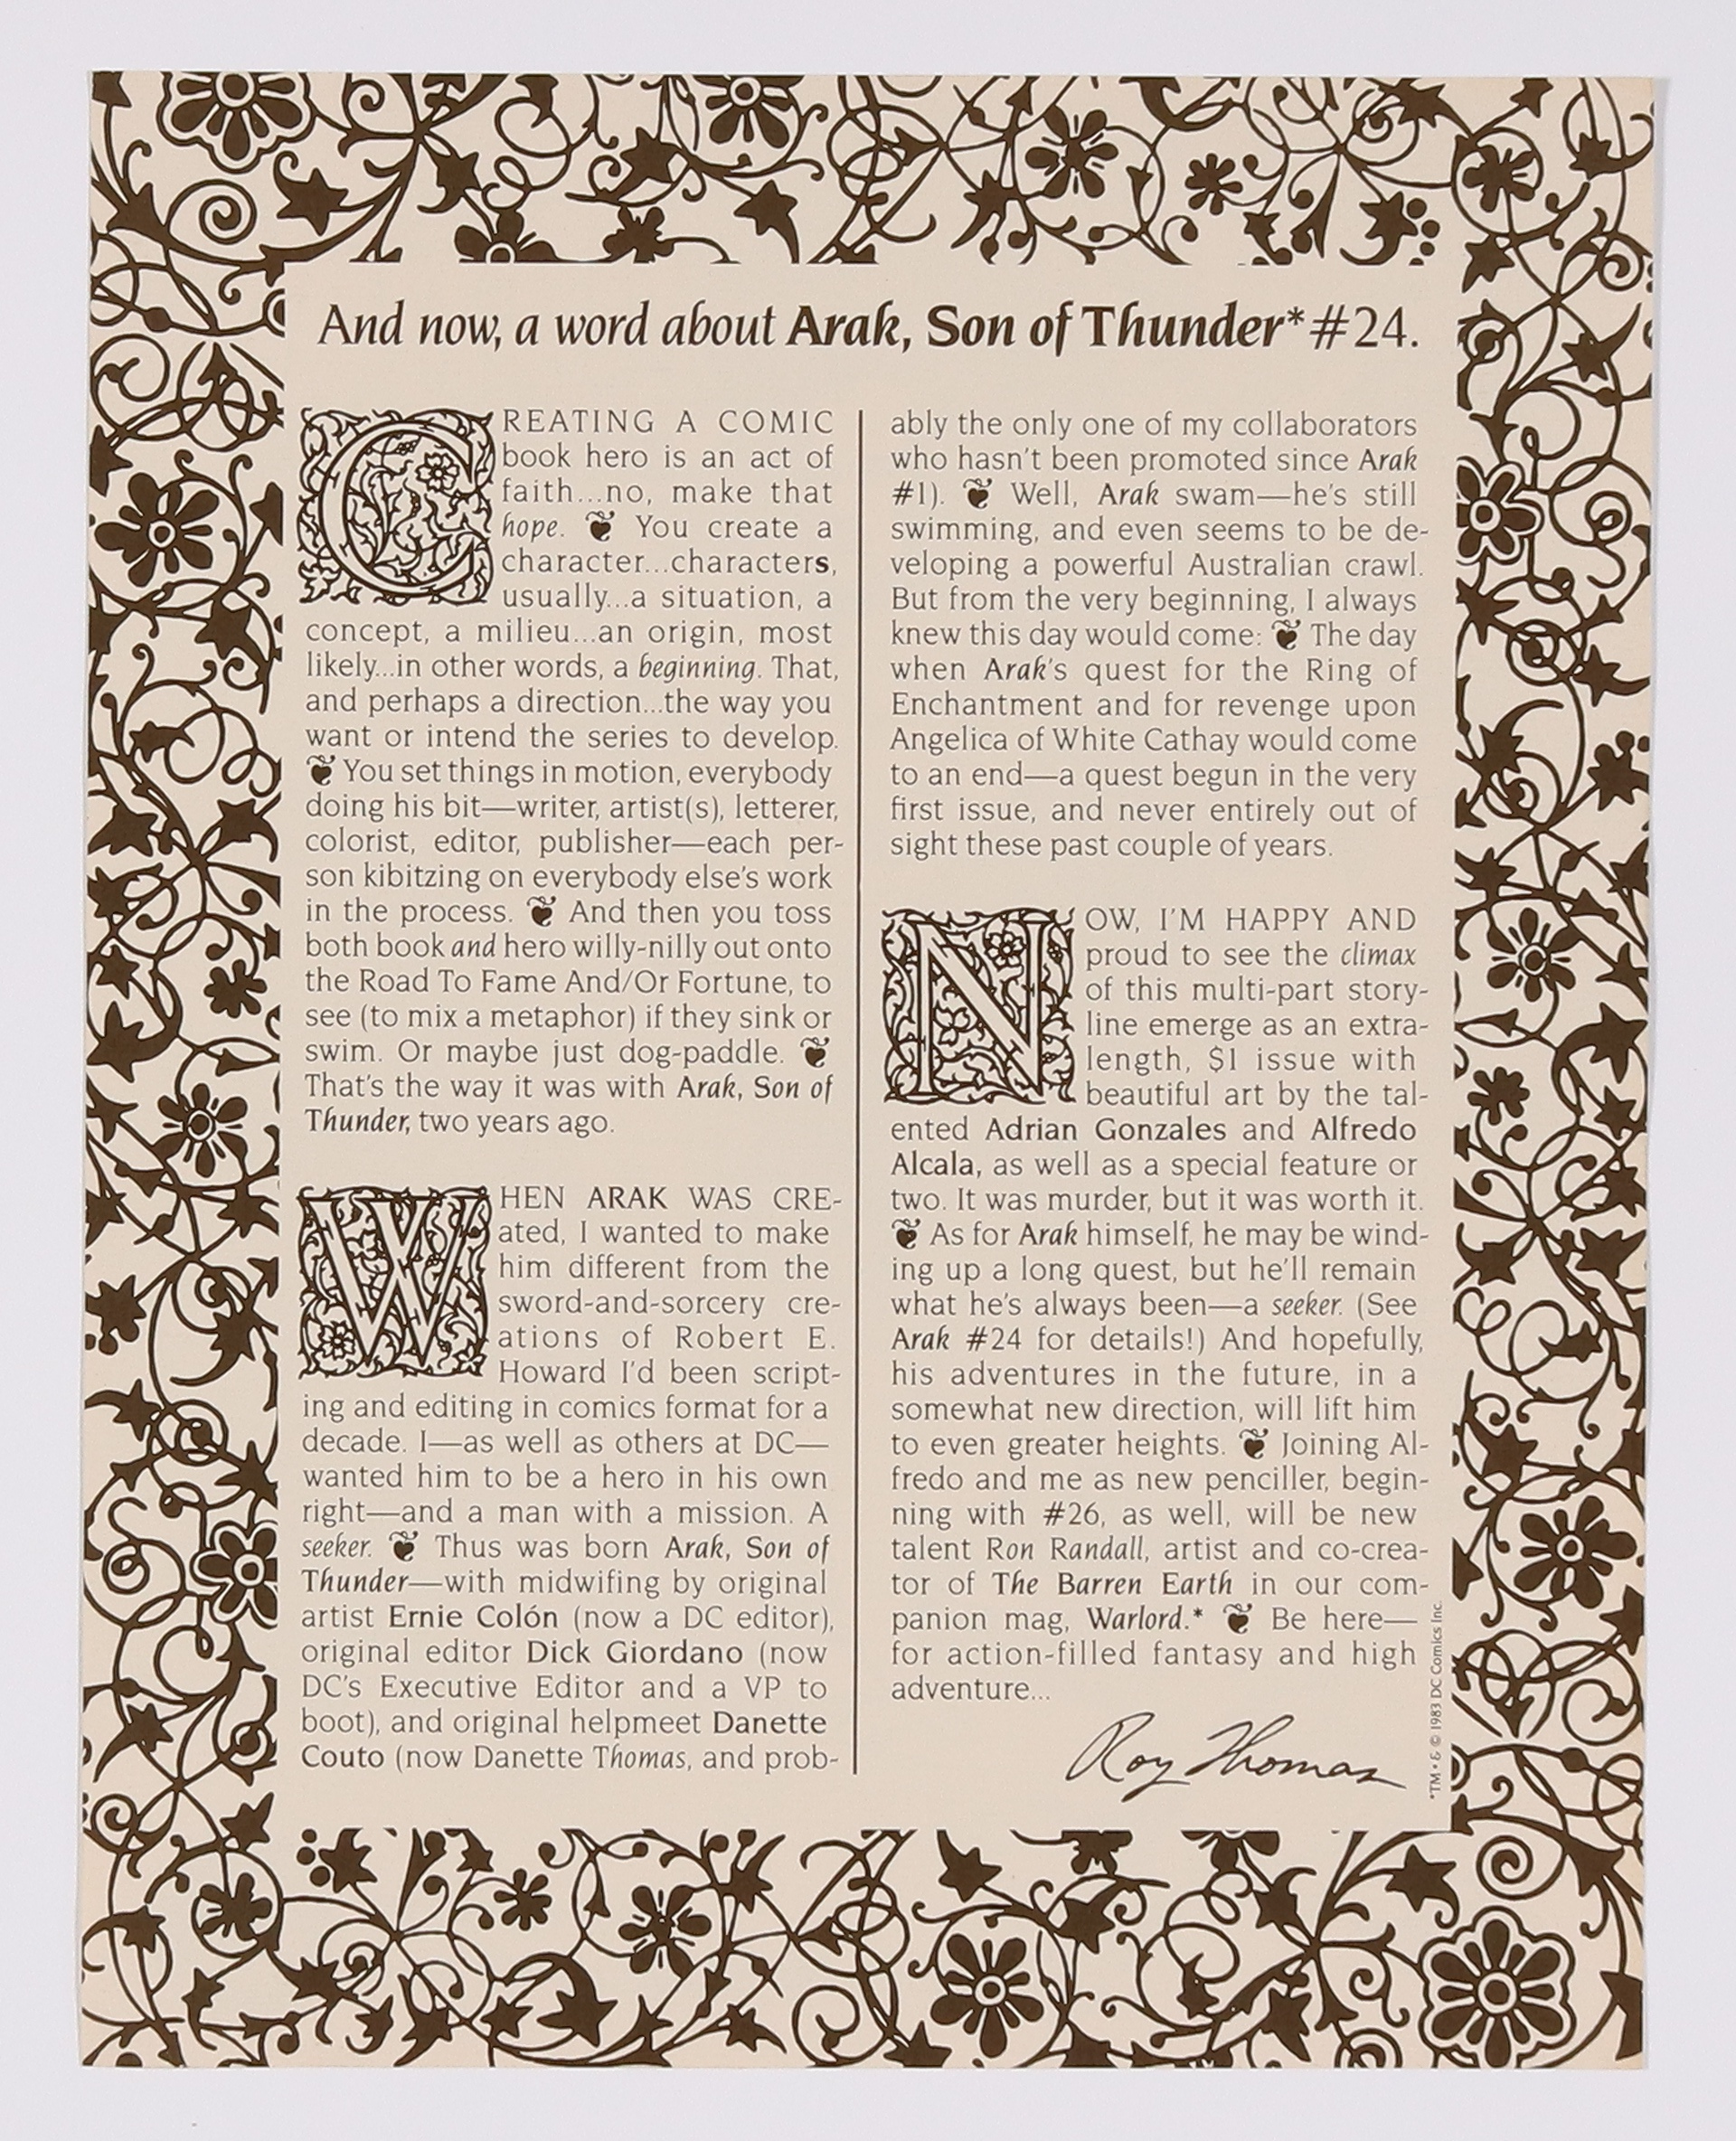 And now, a word about Arak, Son of Thunder* #24.
CREATING A COMIC
book hero is an act of
faith...no, make that
hope. ❦ You create a
character...characters,
usually...a situation, a
concept, a milieu...an origin, most
likely...in other words, a beginning. That,
and perhaps a direction...the way you
want or intend the series to develop.
❦ You set things in motion, everybody
doing his bit—writer, artist(s), letterer,
colorist, editor, publisher—each per-
son kibitzing on everybody else's work
in the process. ❦ And then you toss
both book and hero willy-nilly out onto
the Road To Fame And/Or Fortune, to
see (to mix a metaphor) if they sink or
swim. Or maybe just dog-paddle. ❦
That's the way it was with Arak, Son of
Thunder, two years ago.
WHEN ARAK WAS CRE-
ated, I wanted to make
him different from the
sword-and-sorcery cre-
ations of Robert E.
Howard I'd been script-
ing and editing in comics format for a
decade. I—as well as others at DC—
wanted him to be a hero in his own
right—and a man with a mission. A
seeker. ❦ Thus was born Arak, Son of
Thunder—with midwifing by original
artist Ernie Colón (now a DC editor),
original editor Dick Giordano (now
DC's Executive Editor and a VP to
boot), and original helpmeet Danette
Couto (now Danette Thomas, and prob-
ably the only one of my collaborators
who hasn't been promoted since Arak
#1). ❦ Well, Arak swam—he's still
swimming, and even seems to be de-
veloping a powerful Australian crawl.
But from the very beginning, I always
knew this day would come: ❦ The day
when Arak's quest for the Ring of
Enchantment and for revenge upon
Angelica of White Cathay would come
to an end—a quest begun in the very
first issue, and never entirely out of
sight these past couple of years.
NOW, I'M HAPPY AND
proud to see the climax
of this multi-part story-
line emerge as an extra-
length, $1 issue with
beautiful art by the tal-
ented Adrian Gonzales and Alfredo
Alcala, as well as a special feature or
two. It was murder, but it was worth it.
❦ As for Arak himself, he may be wind-
ing up a long quest, but he'll remain
what he's always been—a seeker. (See
Arak #24 for details!) And hopefully,
his adventures in the future, in a
somewhat new direction, will lift him
to even greater heights. ❦ Joining Al-
fredo and me as new penciller, begin-
ning with #26, as well, will be new
talent Ron Randall, artist and co-crea-
tor of The Barren Earth in our com-
panion mag, Warlord.* ❦ Be here—
for action-filled fantasy and high
adventure...
Roy Thomas
*TM • & © 1983 DC Comics Inc.